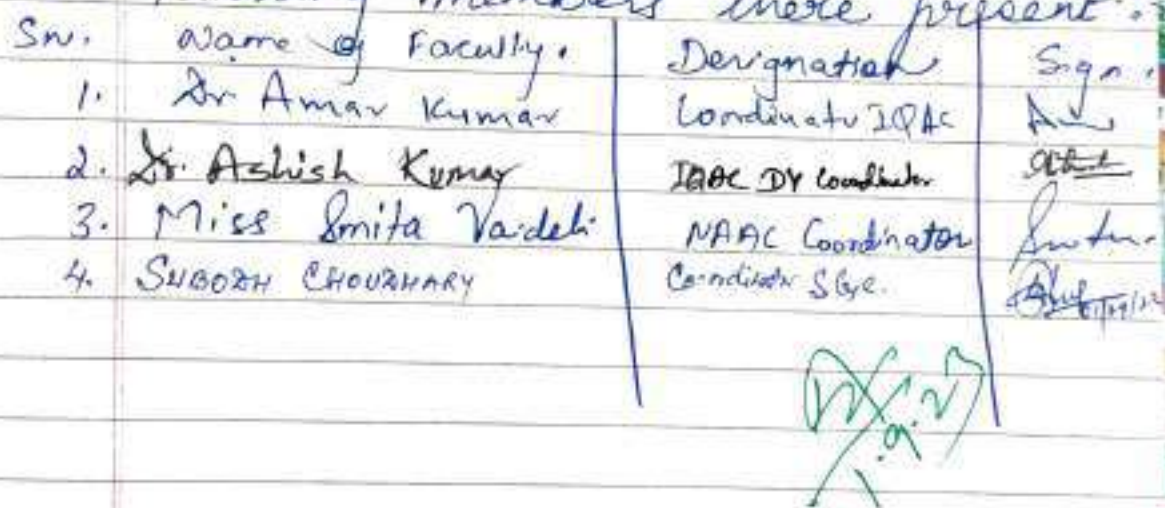 members there present.
Sn. Name of Faculty. Designation Sign.
1. Dr Amar Kumar Coordinator IQAC
2. Dr. Ashish Kumar IQAC DY Coordinator
3. Miss Smita Vaideli NAAC Coordinator
4. SUBODH CHOUDHARY Co-ordinator
1.9.23